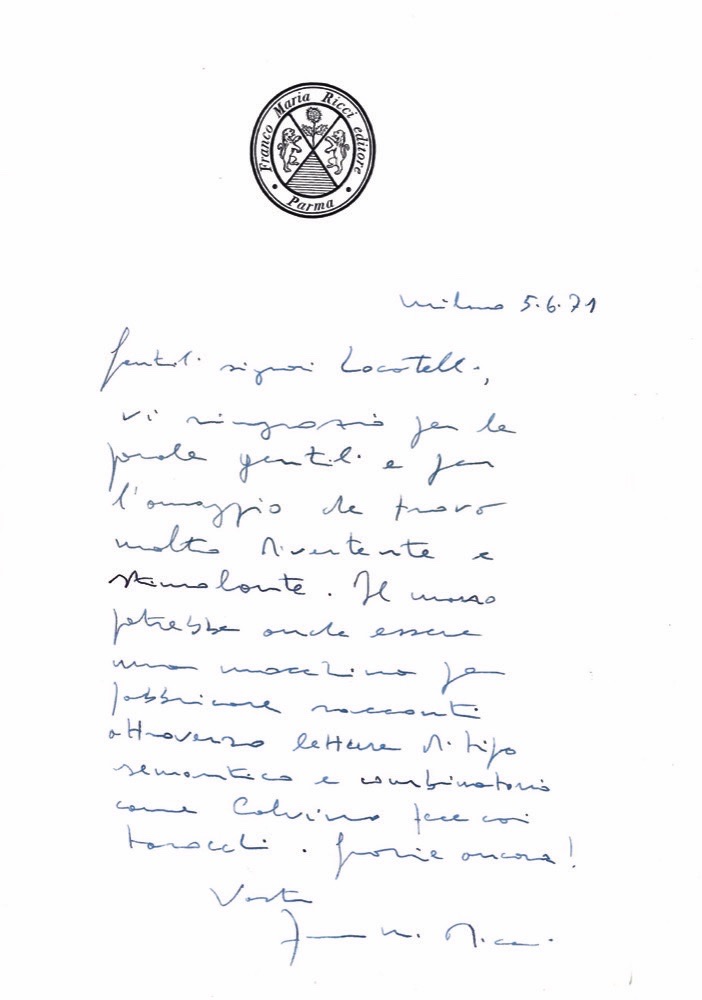 Franco Maria Ricci editore
Parma
Milano 5.6.71
Gentili signori Locatelli,
Vi ringrazio per le
parole gentili e per
l'omaggio che trovo
molto divertente e
stimolante. Il mazzo
potrebbe anche essere
una macchina per
fabbricare racconti
attraverso letture di tipo
semantico e combinatorio
come Calvino fece coi
tarocchi. Grazie ancora!
Vostro
Franco M. Ricci.